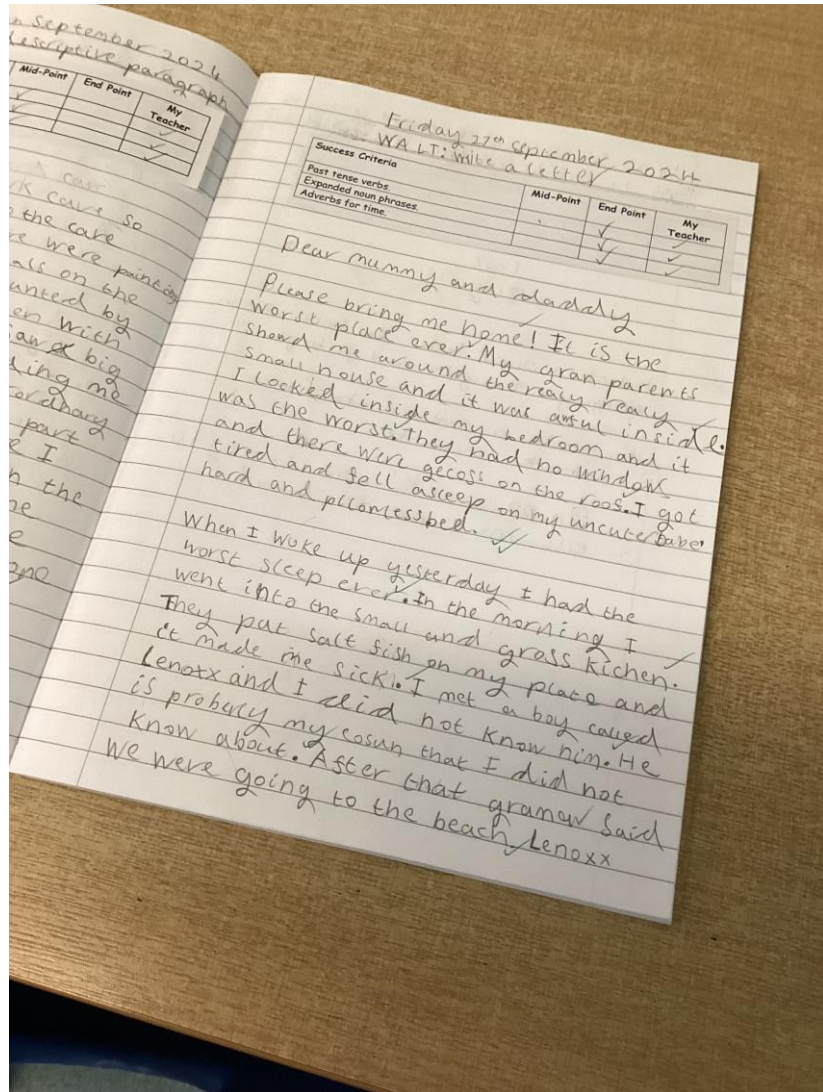 n September 2024
descriptive paragraph
Mid-Point End Point My Teacher
cave
k cave so
the cave
re were painting
als on the
unted by
en with
aw a big
ling me
ordnary
part
e I
n the
ne
e
Friday 27th September 2024
WALT: write a letter
Success Criteria Mid-Point End Point My Teacher
Past tense verbs.
Expanded noun phrases.
Adverbs for time.
Dear mummy and daddy
Please bring me home! It is the
worst place ever. My gran parents
showd me around the realy realy
small house and it was awful inside.
I looked inside my bedroom and it
was the worst. They had no window
and there were gecoss on the roof. I got
tired and fell asleep on my uncuterbabel
hard and pllowlessbed.
When I woke up yesterday I had the
worst sleep ever. In the morning I
went into the small and grass kichen.
They put salt fish on my place and
it made me sick. I met a boy called
Lenoxx and I did not know him. He
is proberly my cosun that I did not
know about. After that granaw said
we were going to the beach. Lenoxx